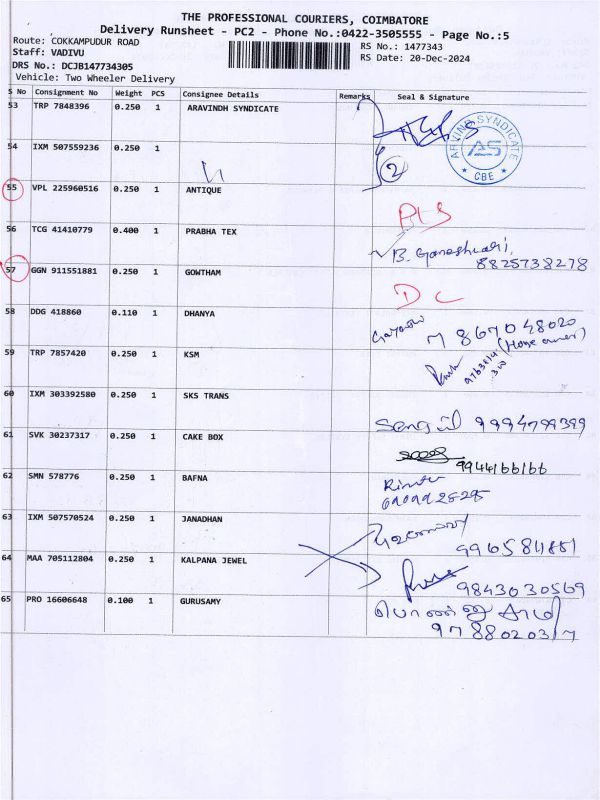 THE PROFESSIONAL COURIERS, COIMBATORE
Delivery Runsheet - PC2 - Phone No.:0422-3505555 - Page No.:5
Route: COKKAMPUDUR ROAD RS No.: 1477343
Staff: VADIVU RS Date: 20-Dec-2024
DRS No.: DCJB147734305
Vehicle: Two Wheeler Delivery
S No Consignment No Weight PCS Consignee Details Remarks Seal & Signature
53 TRP 7848396 0.250 1 ARAVINDH SYNDICATE
ARVIND SYNDICATE
AS
CBE
54 IXM 507559236 0.250 1
2
55 VPL 225960516 0.250 1 ANTIQUE
56 TCG 41410779 0.400 1 PRABHA TEX B. Ganeshwari,
8825738278
57 GGN 911551881 0.250 1 GOWTHAM DC
58 DDG 418860 0.110 1 DHANYA 867048020
(House owner)
59 TRP 7857420 0.250 1 KSM
60 IXM 303392580 0.250 1 SKS TRANS 9994799399
61 SVK 30237317 0.250 1 CAKE BOX 9944166166
62 SMN 578776 0.250 1 BAFNA
63 IXM 507570524 0.250 1 JANADHAN
64 MAA 705112804 0.250 1 KALPANA JEWEL 9843030569
65 PRO 16606648 0.100 1 GURUSAMY பொன்னுசாமி
9788020317